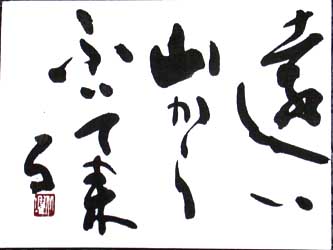 遠い
山から
ふいて来
る